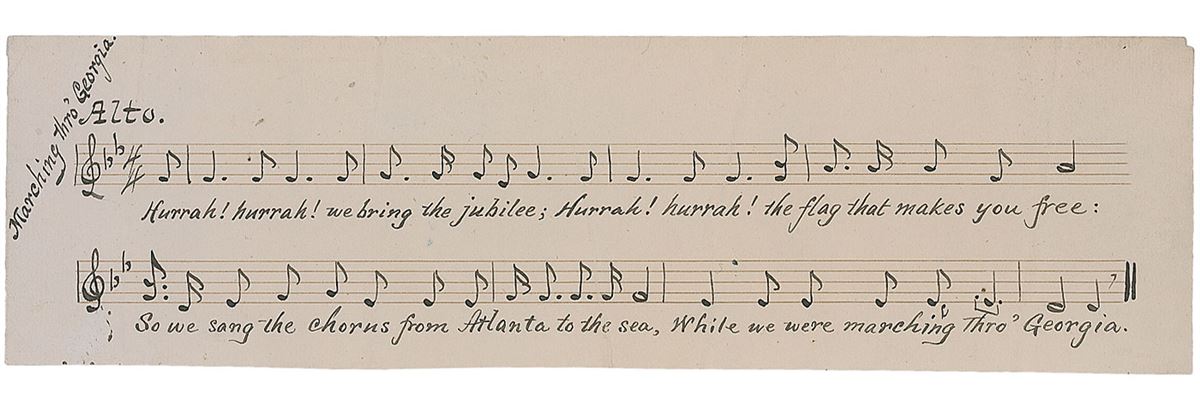 Marching Thro' Georgia.
Alto.
Hurrah! hurrah! we bring the jubilee; Hurrah! hurrah! the flag that makes you free:
So we sang the chorus from Atlanta to the sea, While we were marching Thro' Georgia.